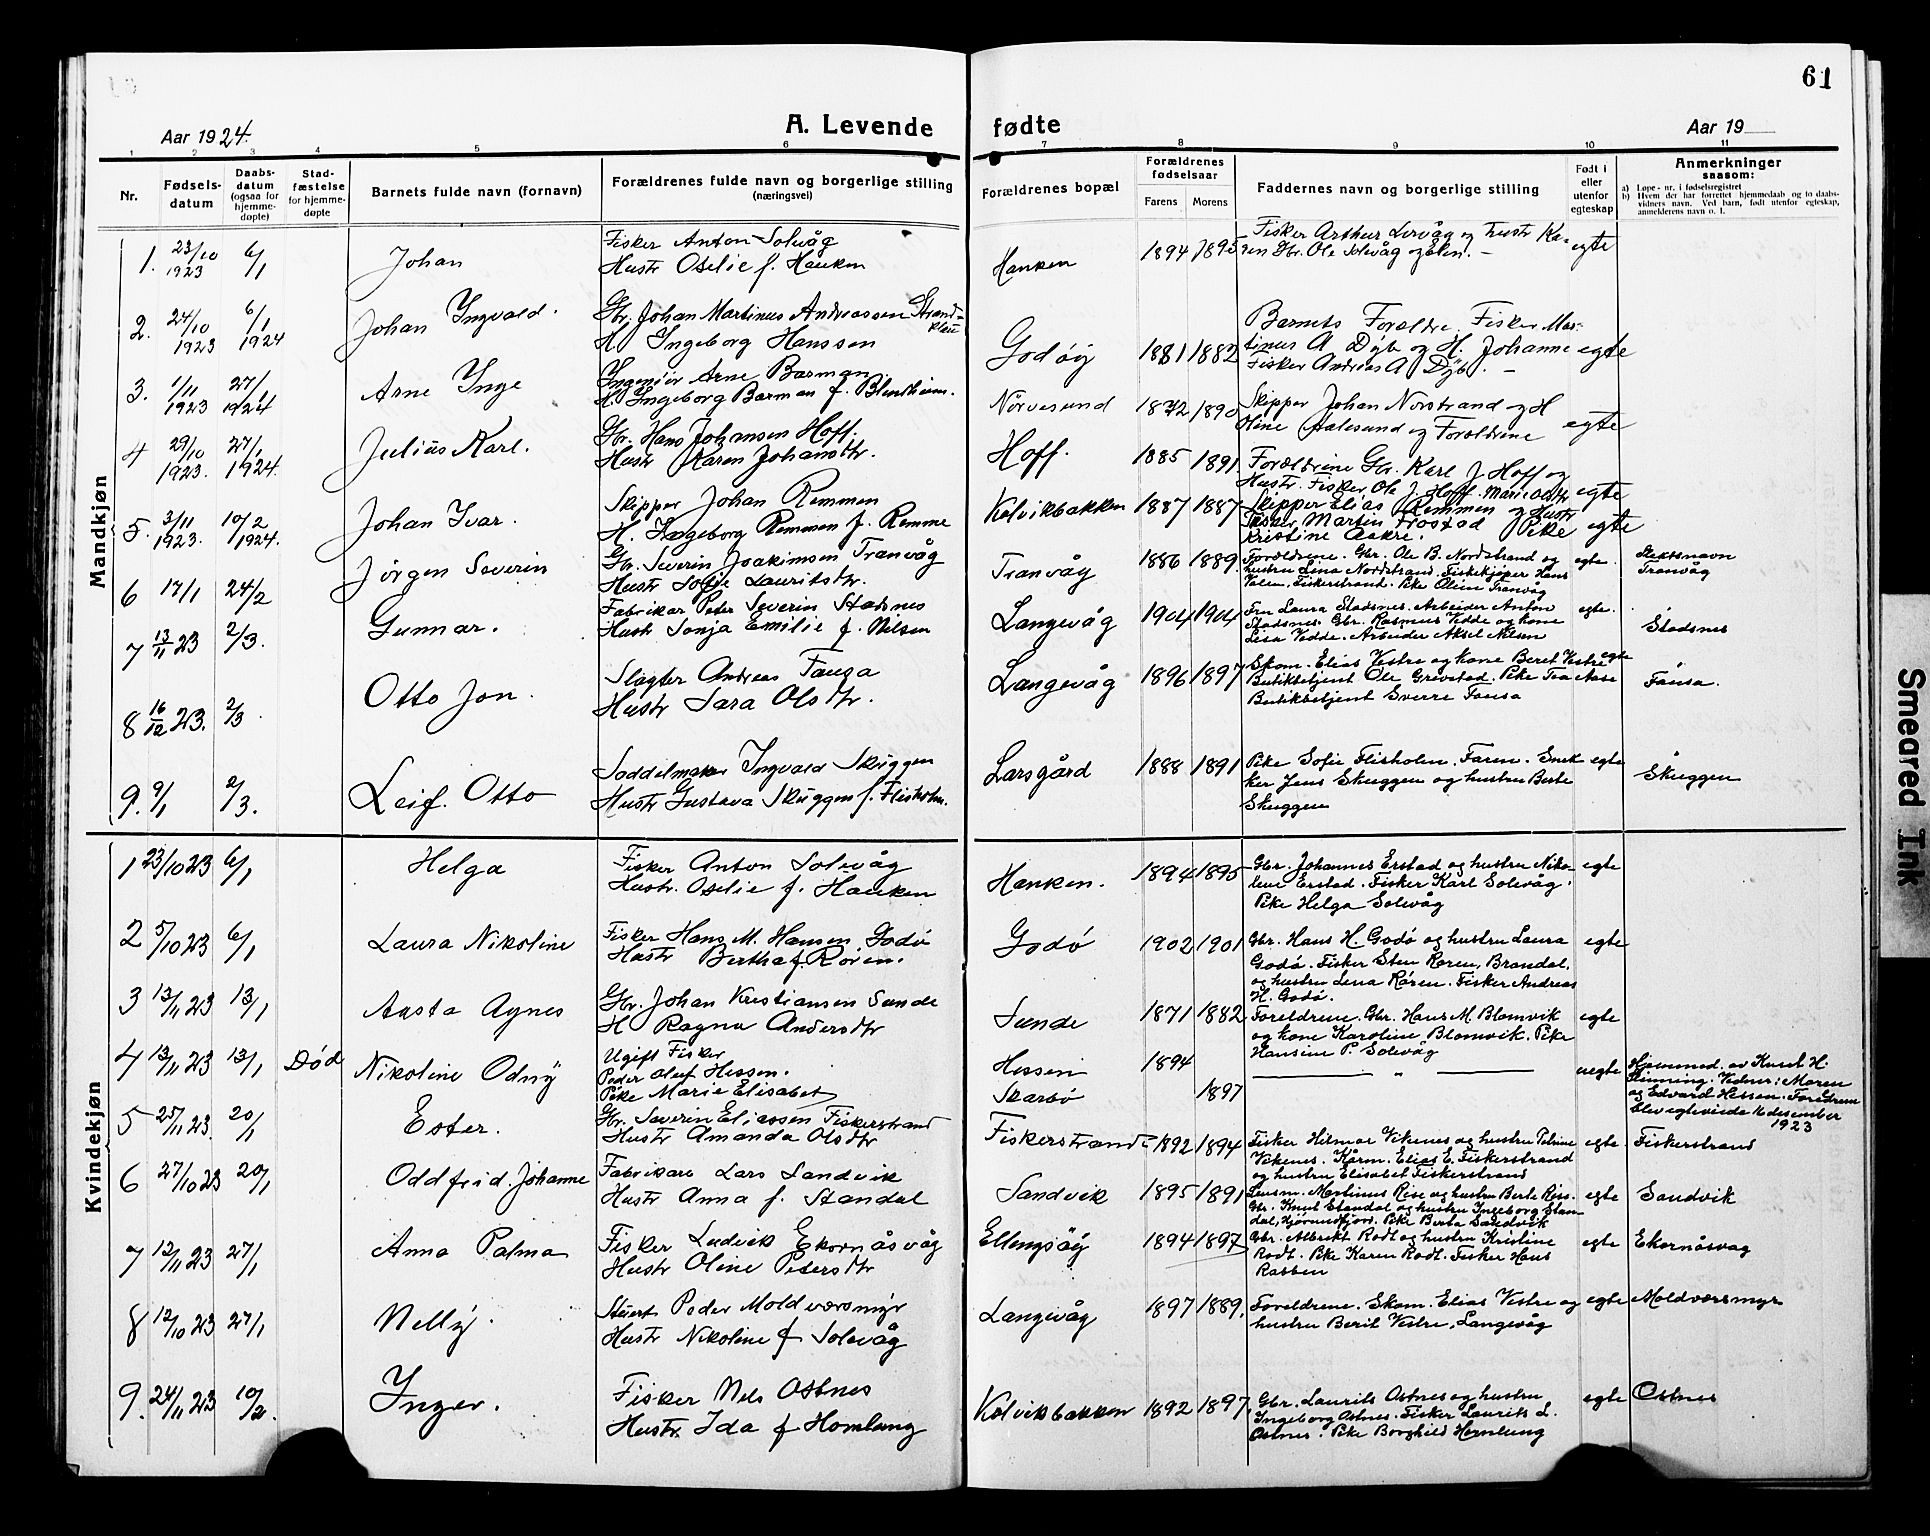 61
Aar 1924.
A. Levende fødte
Aar 19
1 2 3 4 5 6 7 8 9 10 11
Nr.
Fødsels-
datum
Daabs-
datum
(ogsaa for
hjemme-
døpte)
Stad-
fæstelse
for hjemme-
døpte
Barnets fulde navn (fornavn)
Forældrenes fulde navn og borgerlige stilling
(næringsvei)
Forældrenes bopæl
Forældrenes
fødselsaar
Farens Morens
Faddernes navn og borgerlige stilling
Født i
eller
utenfor
egteskap
Anmerkninger
saasom:
a) Løpe-nr. i fødselsregistret
b) Hvem der har forrettet hjemmedaab og to daabs-
vidnets navn. Ved barn, født utenfor egteskap,
anmelderens navn o. l.
Mandkjøn
1. 23/10 1923 6/1 Johan
Fisker Anton Solvåg
Hustr Oselie f. Hauken
Hanken 1894 1895
Fisker Arthur Lervåg og hustr Ka-
ren Gbr. Ole Solvåg og Elen. -
egte
2. 24/10 1923 6/1 1924 Johan Ingvald.
Gbr. Johan Martinus Andreassen Strand-
H. Ingeborg Hanssen
Godøy 1881 1882
Barnets Foreldre. Fisker Mar-
tinus A Dyb og H. Johanne
Fisker Andreas A Dyb. -
egte
3. 1/11 1923 27/1 1924 Arne Inge
Ingeniør Arne Barman.
H. Ingeborg Barman f. Blindheim.
Nørvesund 1872 1890
Skipper Johan Norstrand og H
Oline Aalesund og Foreldrene
egte
4 29/10 1923. 27/1 1924. Julius Karl.
Gbr. Hans Johansen Hoff.
Hustr Karen Johansdtr.
Hoff. 1885 1891.
Foreldrene Gbr. Karl J. Hoff og
Hustr. Fisker Ole J. Hoff. Marie Olsdtr
egte
5. 3/11 1923. 10/2 1924. Johan Ivar.
Skipper Johan Remmen
H. Ingeborg Remmen f. Remme
Kolvikbakken 1887 1887
Skipper Elias Remmen og Hustr
Fisker Martin Frostad Pike
Kristine Aakre.
egte
6 17/1 24/2 Jørgen Severin
Gbr. Severin Joakimsen Tranvåg
Hustr Sofie Lauritsdtr.
Tranvåg 1886 1889.
Foreldrene. Gbr. Ole B. Nordstrand og
hustru Lina Nordstrand. Fiskekjøper Hans
Veien, Fiskerstrand. Pike Oline Tranvåg
egte.
Slektsnavn
Tranvåg
7 13/11 23 2/3. Gunnar.
Fabrikar Peter Severin Stadsnes
Hustr Sonja Emilie f. Nilsen
Langevåg 1904 1904
Fru Laura Stadsnes. Arbeider Anton
Stadsnes. Gbr. Rasmus Vedde og kone
Lisa Vedde. Arbeider Aksel Nilsen
egte.
Stadsnes
8 16/12 23. 2/3. Otto Jon.
Slagter Andreas Fausa
Hustr Sara Olsdtr.
Langevåg 1896 1897
Skom. Elias Vestre og kone Beret Vestre
Butikbetjent Ole Grevstad. Pike Tea Aase
Butikbetjent Sverre Fausa
egte
Fausa.
9. 9/1 2/3. Leif. Otto
Saddelmaker Ingvald Skuggen
Hustr Gustava Skuggen f. Flisholm.
Larsgård 1888 1891
Pike Sofie Flisholm. Faren. Snek
ker Jens Skuggen og hustru Berte
Skuggen
egte
Skuggen
Kvindekjøn
1 23/10 23 6/1 Helga
Fisker Anton Solevåg
Hustr. Oselie f. Hauken
Hanken. 1894 1895
Gbr. Johannes Erstad og hustru Niko-
line Erstad. Fisker Karl Solevåg.
Pike Helga Solevåg
egte
2 5/10 23 6/1 Laura Nikoline
Fisker Hans M. Hansen Godø
Hustr Bertha f. Røren.
Godø 1902 1901
Gbr. Hans H. Godø og hustru Laura
Godø. Fisker Sten Røren, Brandal,
og hustru Lena Røren. Fisker Andreas
H. Godø.
egte
3 13/11 23 13/1 Aasta Agnes
Gbr. Johan Kristiansen Sunde
H Ragna Andersdtr
Sunde 1871 1882
Foreldrene. Gbr. Hans M Blomvik
og kone Karoline Blomvik. Pike
Hansine P. Solevåg
egte
4 13/11 23 13/1 Død Nikoline Odny
Ugift Fisker
Peder Oluf Hessen.
Pike Marie Elisabet
Hessen 1894
Skarbø 1897
— " —
uegte
Hjemmed. av Knut H.
Vidner: Maren
og Edvard Hessen. Foreldrene
blev egteviede 16 desember
1923
5 25/11 23. 20/1 Ester.
Gbr. Severin Eliassen Fiskerstrand
Hustr Amanda Olsdtr
Fiskerstrand 1892 1894
Fisker Hilmar Vikenes og hustru Petrine
Vikenes. Kårm. Elias E. Fiskerstrand
og hustru Elisabet Fiskerstrand
egte
Fiskerstrand
6 27/10 23 20/1 Oddfrid. Johanne
Fabrikare Lars Sandvik
Hustr Anna f. Standal
Sandvik 1895 1891
Lensm. Martinus Rise og hustru Berte Rise.
Gbr. Knut Standal og hustru Ingeborg Stan-
dal, Hjørundfjord. Pike Berta Sandvik
egte
Sandvik
7 12/11 23 27/1 Anna Palma
Fisker Ludvik Ekornåsvåg
Hustr Oline Petersdtr
Ellingsøy 1894 1897
Gbr. Albrikt Rødt og hustru Kristine
Rødt. Pike Karen Rødt. Fisker Hans
Rabben
egte
Ekornåsvag
8 12/10 23 27/1 Nelly.
Stuert Peder Moldværsmyr
Hustr Nikoline f Solevåg
Langevåg 1897 1889.
Foreldrene. Skom. Elias Vestre og
hustru Berit Vestre, Langevåg
egte
Moldværsmyr
9. 24/11 23 10/2. Inger.
Fisker Nels Ostnes
Hustr. Ida f Homlung
Kolvikbakken 1892 1897
Gbr. Laurits Ostnes og hustru
Ingeborg Ostnes. Fisker Laurits L.
Ostnes. Pike Borghild Homlung
egte
Ostnes
Smeared Ink